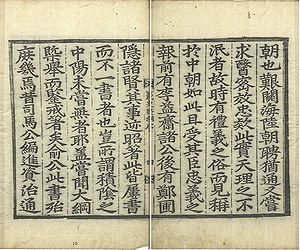 朝也艱關海陸朝聘猶通又嘗
求之教此實天理之不
泯者故時有禮義之俗而見稱
於中朝如此且受其義之
報前有李益齋諸公後有鄭圃
隱諸賢其事迹昭者此皆屢書
而不一書者也豈所謂積陰之
中陽未嘗無者耶蓋嘗聞大綱
槩舉而鑒戒者矣前此書殆
庶幾焉昔司馬公編進資治通